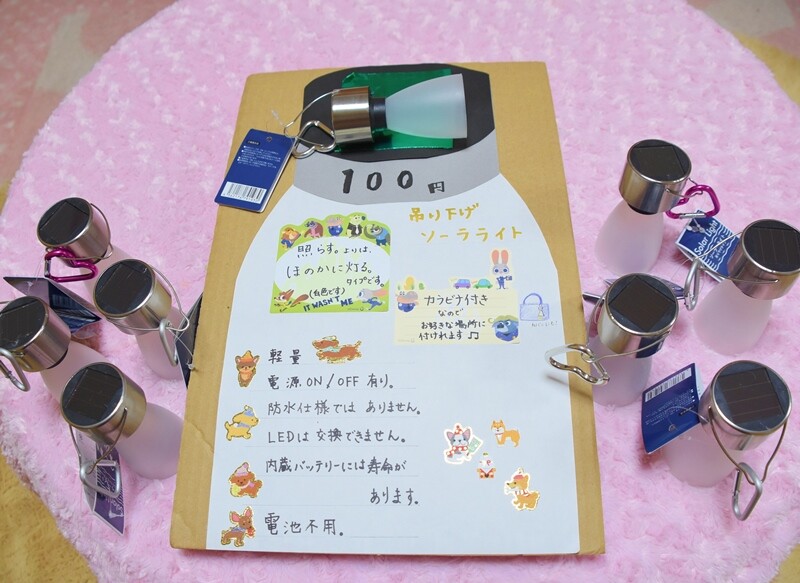 100円
吊り下げ
ソーラライト
照らす。よりは、
ほのかに灯る。
タイプです。
(白色です)
IT WASN'T ME
カラビナ付き
なので
お好きな場所に
付けれます♫
軽量
電源ON/OFF 有り。
防水仕様では ありません。
LEDは交換できません。
内蔵バッテリーには寿命が
あります。
電池不用。
Solar Light